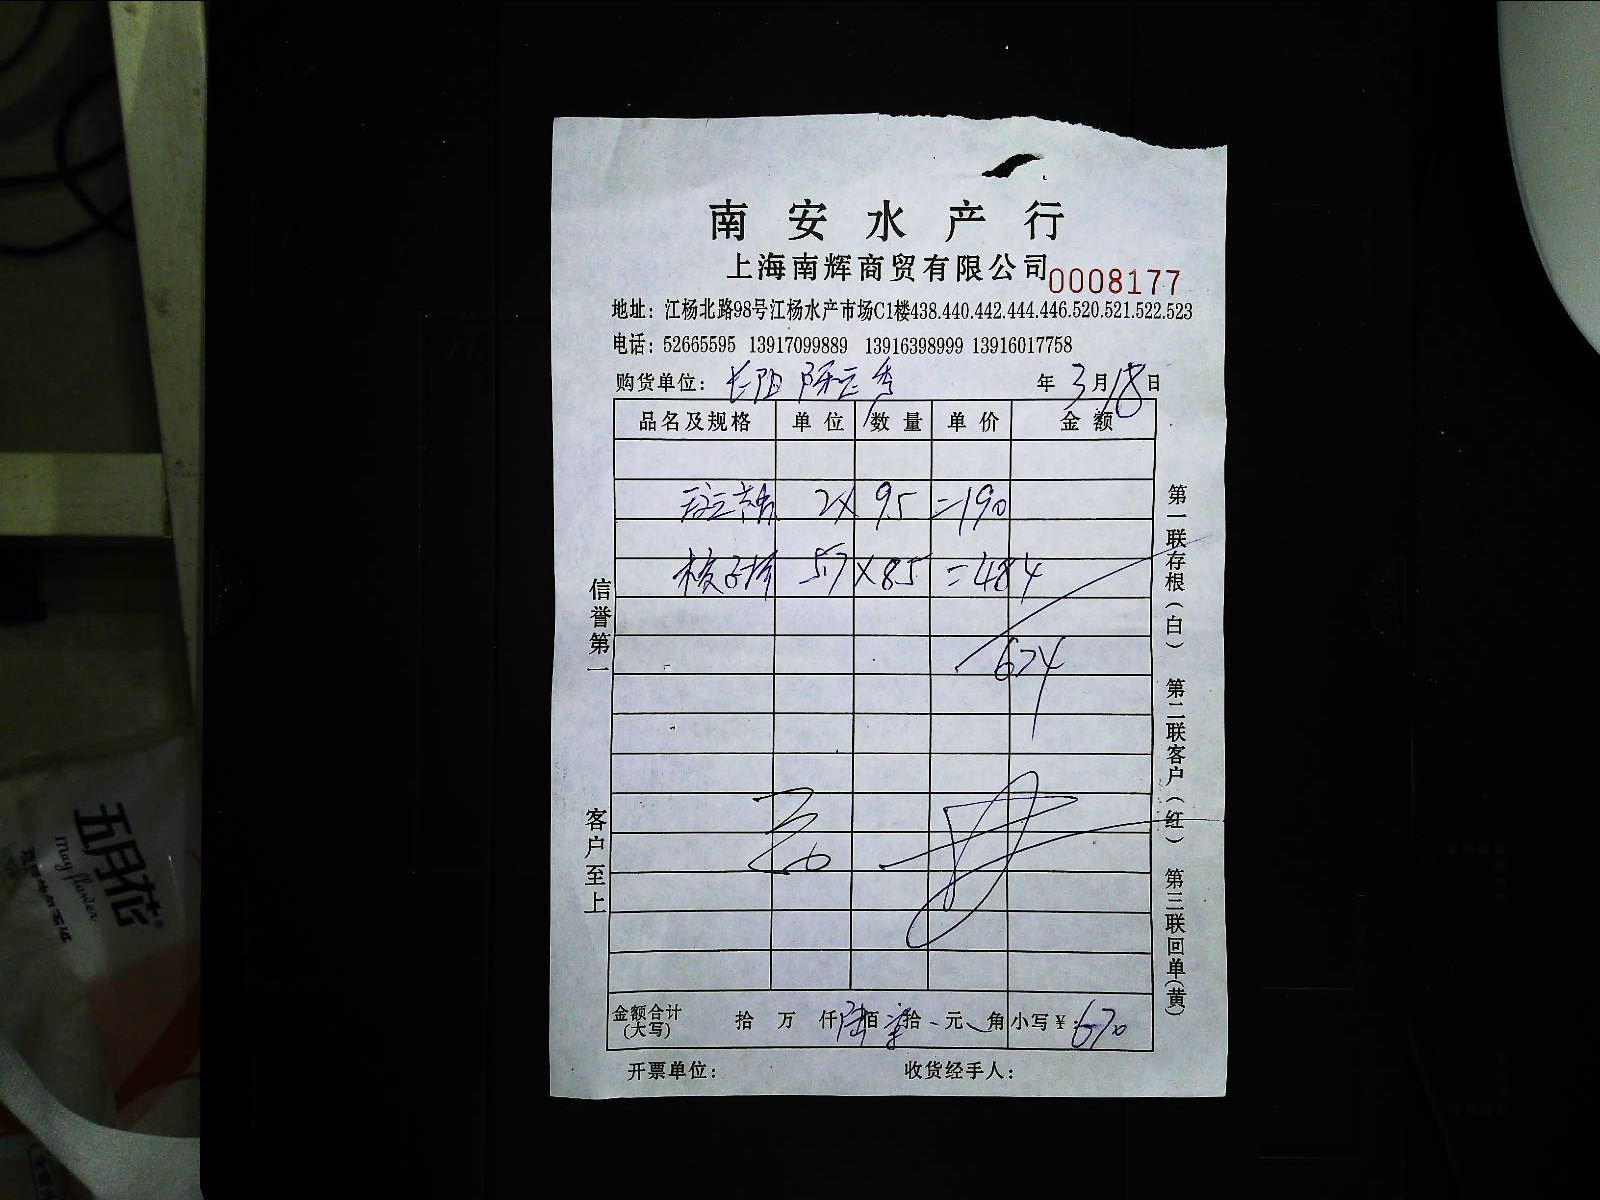 南安水产行
上海南辉商贸有限公司 0008177
地址：江杨北路98号江杨水产市场C1楼438.440.442.444.446.520.521.522.523
电话：52665595 13917099889 13916398999 13916017758
购货单位： 年3月18日
品名及规格 单位 数量 单价 金额
2× 95 =190
梭子蟹 57×85 =484
674
金额合计(大写) 拾 万 仟陆佰柒拾 元 角 小写¥：670
开票单位： 收货经手人：
信誉第一
客户至上
第一联存根(白) 第二联客户(红) 第三联回单(黄)
五月花
May flower